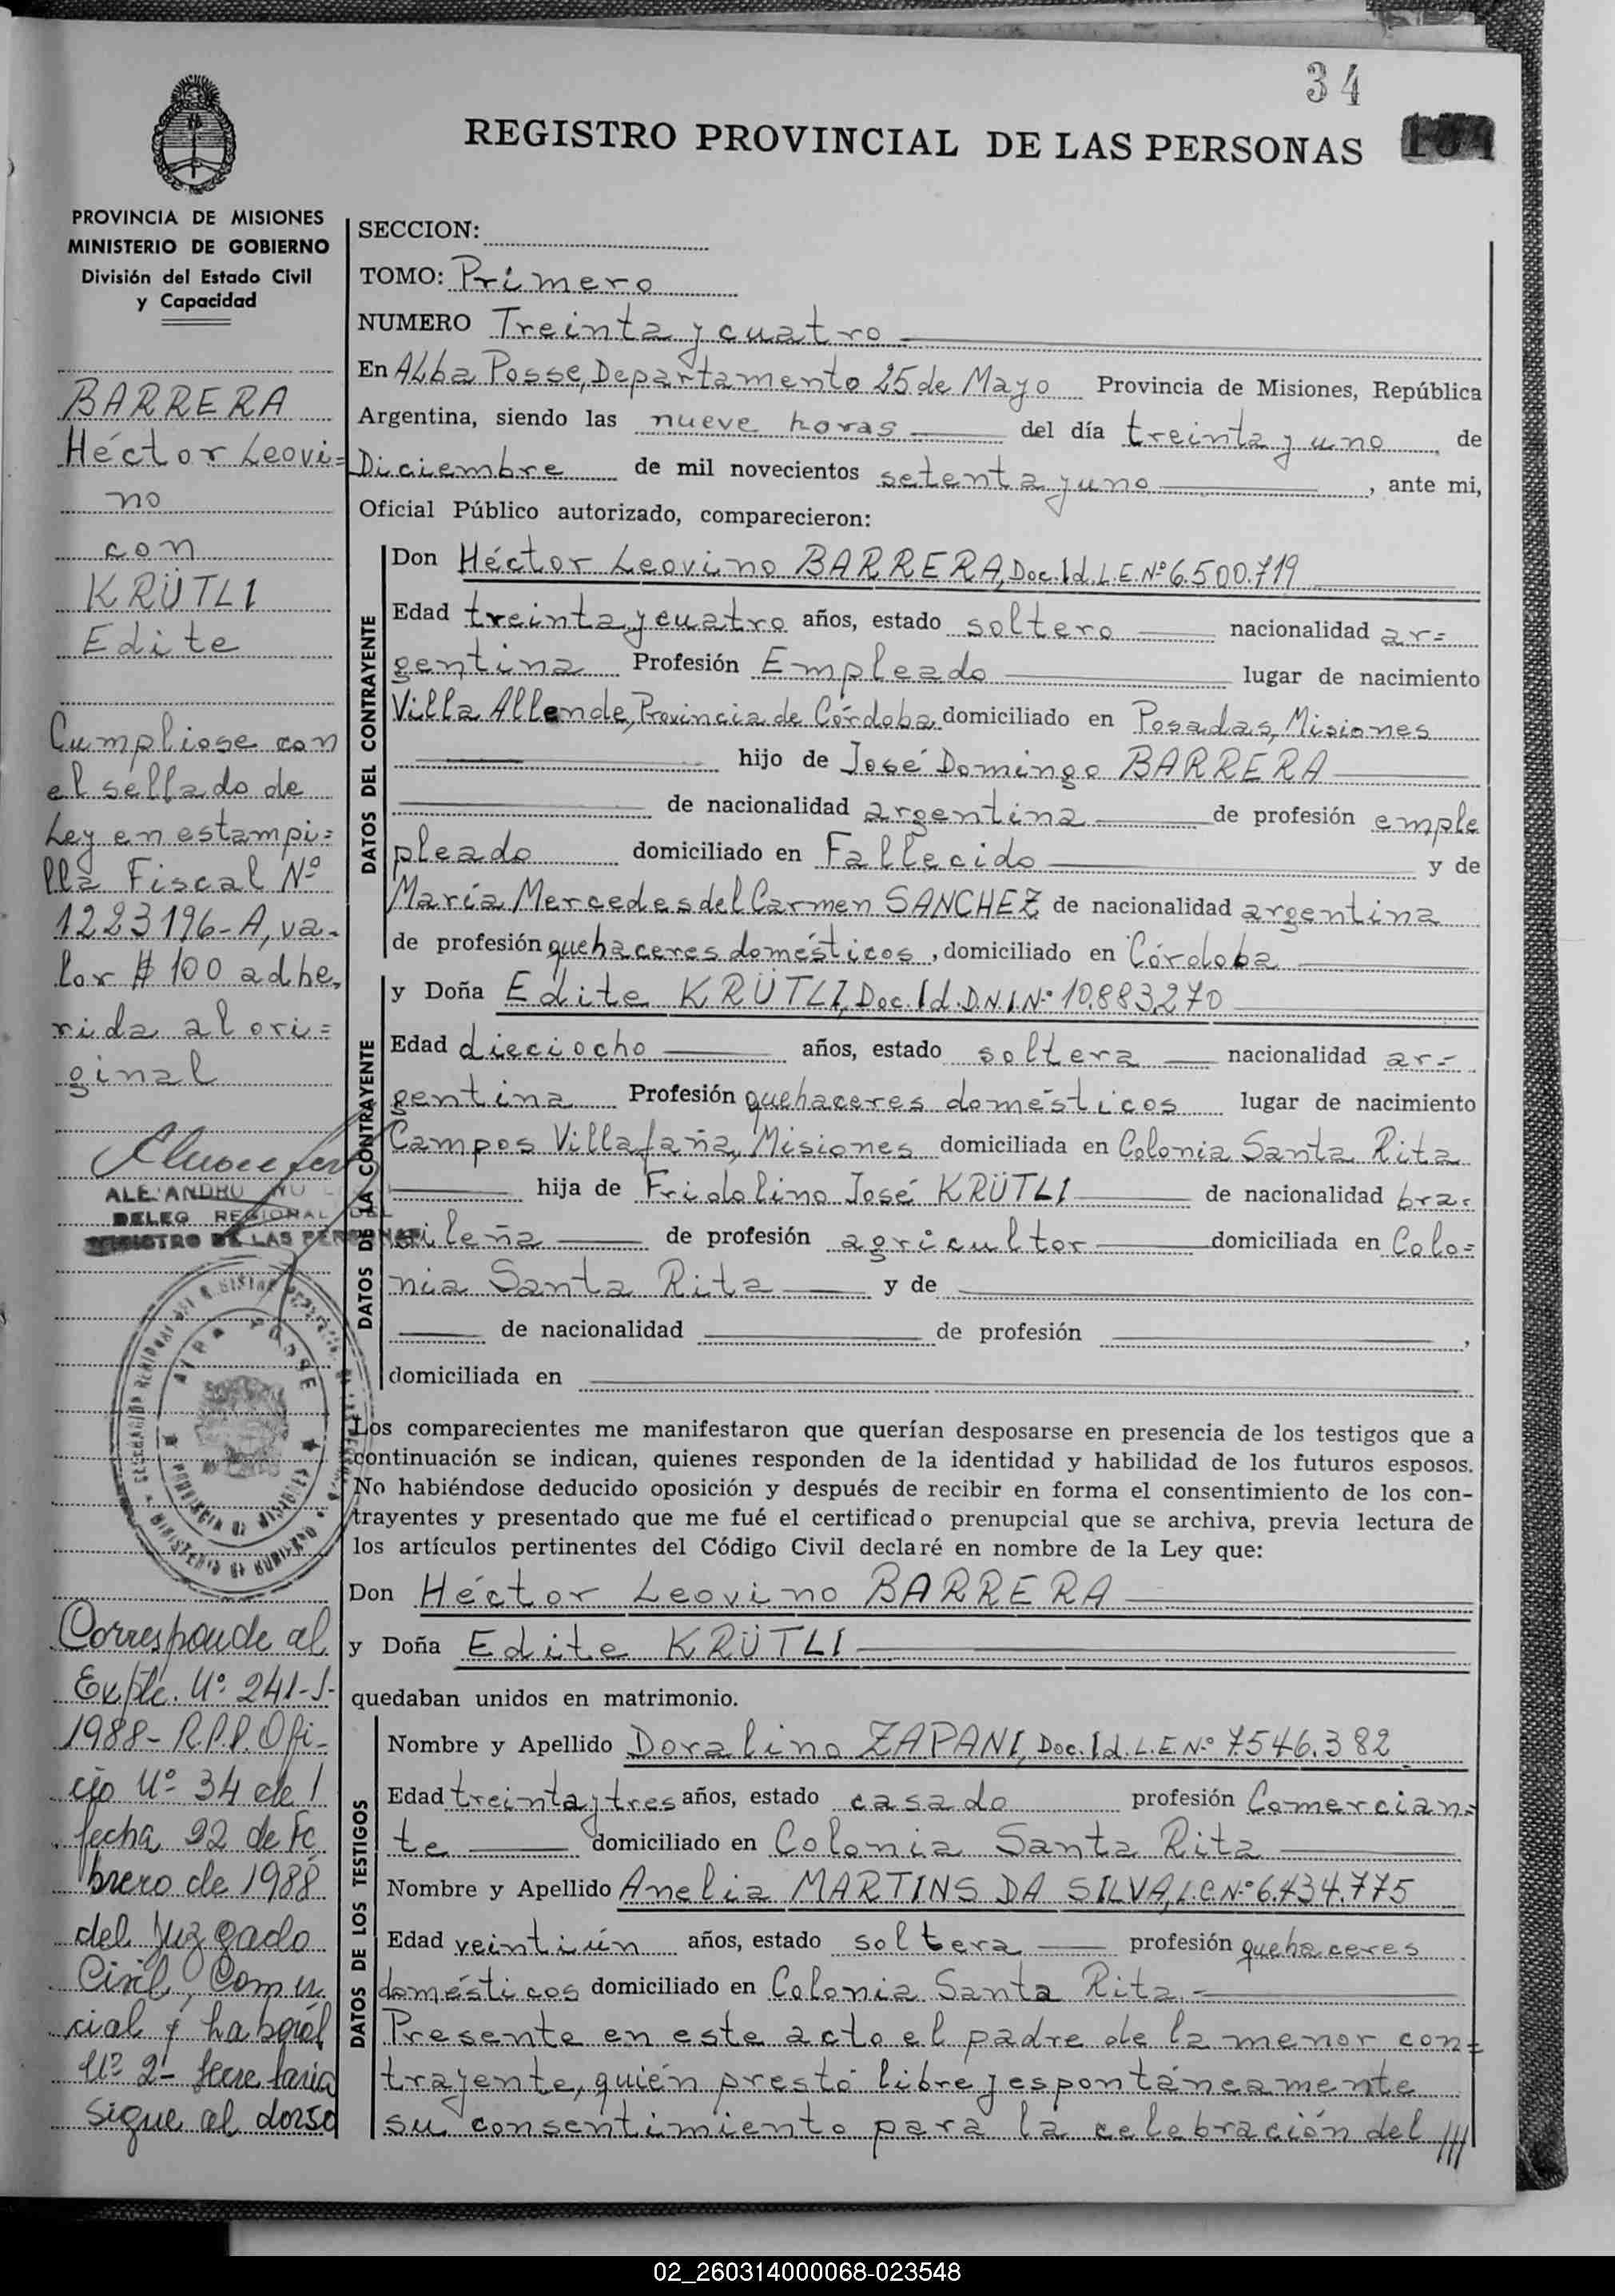 34
REGISTRO PROVINCIAL DE LAS PERSONAS
PROVINCIA DE MISIONES
MINISTERIO DE GOBIERNO
División del Estado Civil
y Capacidad
BARRERA
Héctor Leovi=
no
con
KRÜTLI
Edite
Cumpliose con
el sellado de
Ley en estampi=
lla Fiscal Nº
1223196-A, va-
lor $ 100 adhe,
rida al ori=
ginal
DELEG REGIONAL DEL
REGISTRO DE LAS PERSONAS
ALBA POSSE
PROVINCIA DE MISIONES
MINISTERIO DE GOBIERNO
Corresponde al
Expte. Nº 241-J-
1988- R.P.P. Ofi-
cio Nº 34 de
fecha 22 de Fe
brero de 1988
del Juzgado
Civil, Comer
cial y Laboral
Nº 2- Secretaria
sigue al dorso
SECCION:
TOMO: Primero
NUMERO Treinta y cuatro
En Alba Posse, Departamento 25 de Mayo Provincia de Misiones, República
Argentina, siendo las nueve horas del día treinta y uno de
Diciembre de mil novecientos setenta y uno, ante mi,
Oficial Público autorizado, comparecieron:
DATOS DEL CONTRAYENTE
Don Héctor Leovino BARRERA, Doc. Id. L.E. Nº 6.500.719
Edad treinta y cuatro años, estado soltero nacionalidad ar=
gentina Profesión Empleado lugar de nacimiento
Villa Allende, Provincia de Córdoba, domiciliado en Posadas, Misiones
hijo de José Domingo BARRERA
de nacionalidad argentina de profesión emple
pleado domiciliado en Fallecido y de
María Mercedes del Carmen SANCHEZ de nacionalidad argentina
de profesión quehaceres domésticos, domiciliado en Córdoba
DATOS DE LA CONTRAYENTE
y Doña Edite KRÜTLI, Doc. Id. D.N.I. Nº 10.883.270
Edad dieciocho años, estado soltera nacionalidad ar=
gentina Profesión quehaceres domésticos lugar de nacimiento
Campos Villafaña, Misiones domiciliada en Colonia Santa Rita
hija de Fridolino José KRÜTLI de nacionalidad bra-
sileña de profesión agricultor domiciliada en Colo=
nia Santa Rita y de
de nacionalidad de profesión ,
domiciliada en
Los comparecientes me manifestaron que querían desposarse en presencia de los testigos que a
continuación se indican, quienes responden de la identidad y habilidad de los futuros esposos.
No habiéndose deducido oposición y después de recibir en forma el consentimiento de los con-
trayentes y presentado que me fué el certificado prenupcial que se archiva, previa lectura de
los artículos pertinentes del Código Civil declaré en nombre de la Ley que:
Don Héctor Leovino BARRERA
y Doña Edite KRÜTLI
quedaban unidos en matrimonio.
DATOS DE LOS TESTIGOS
Nombre y Apellido Doralino ZAPANI, Doc. Id. L.E. Nº 7.546.382
Edad treinta y tres años, estado casado profesión Comercian=
te domiciliado en Colonia Santa Rita
Nombre y Apellido Anelia MARTINS DA SILVA, L.C. Nº 6.434.775
Edad veintiún años, estado soltera profesión quehaceres
domésticos domiciliado en Colonia Santa Rita.-
Presente en este acto el padre de la menor con=
trayente, quién prestó libre y espontáneamente
su consentimiento para la celebración del ///
02_260314000068-023548